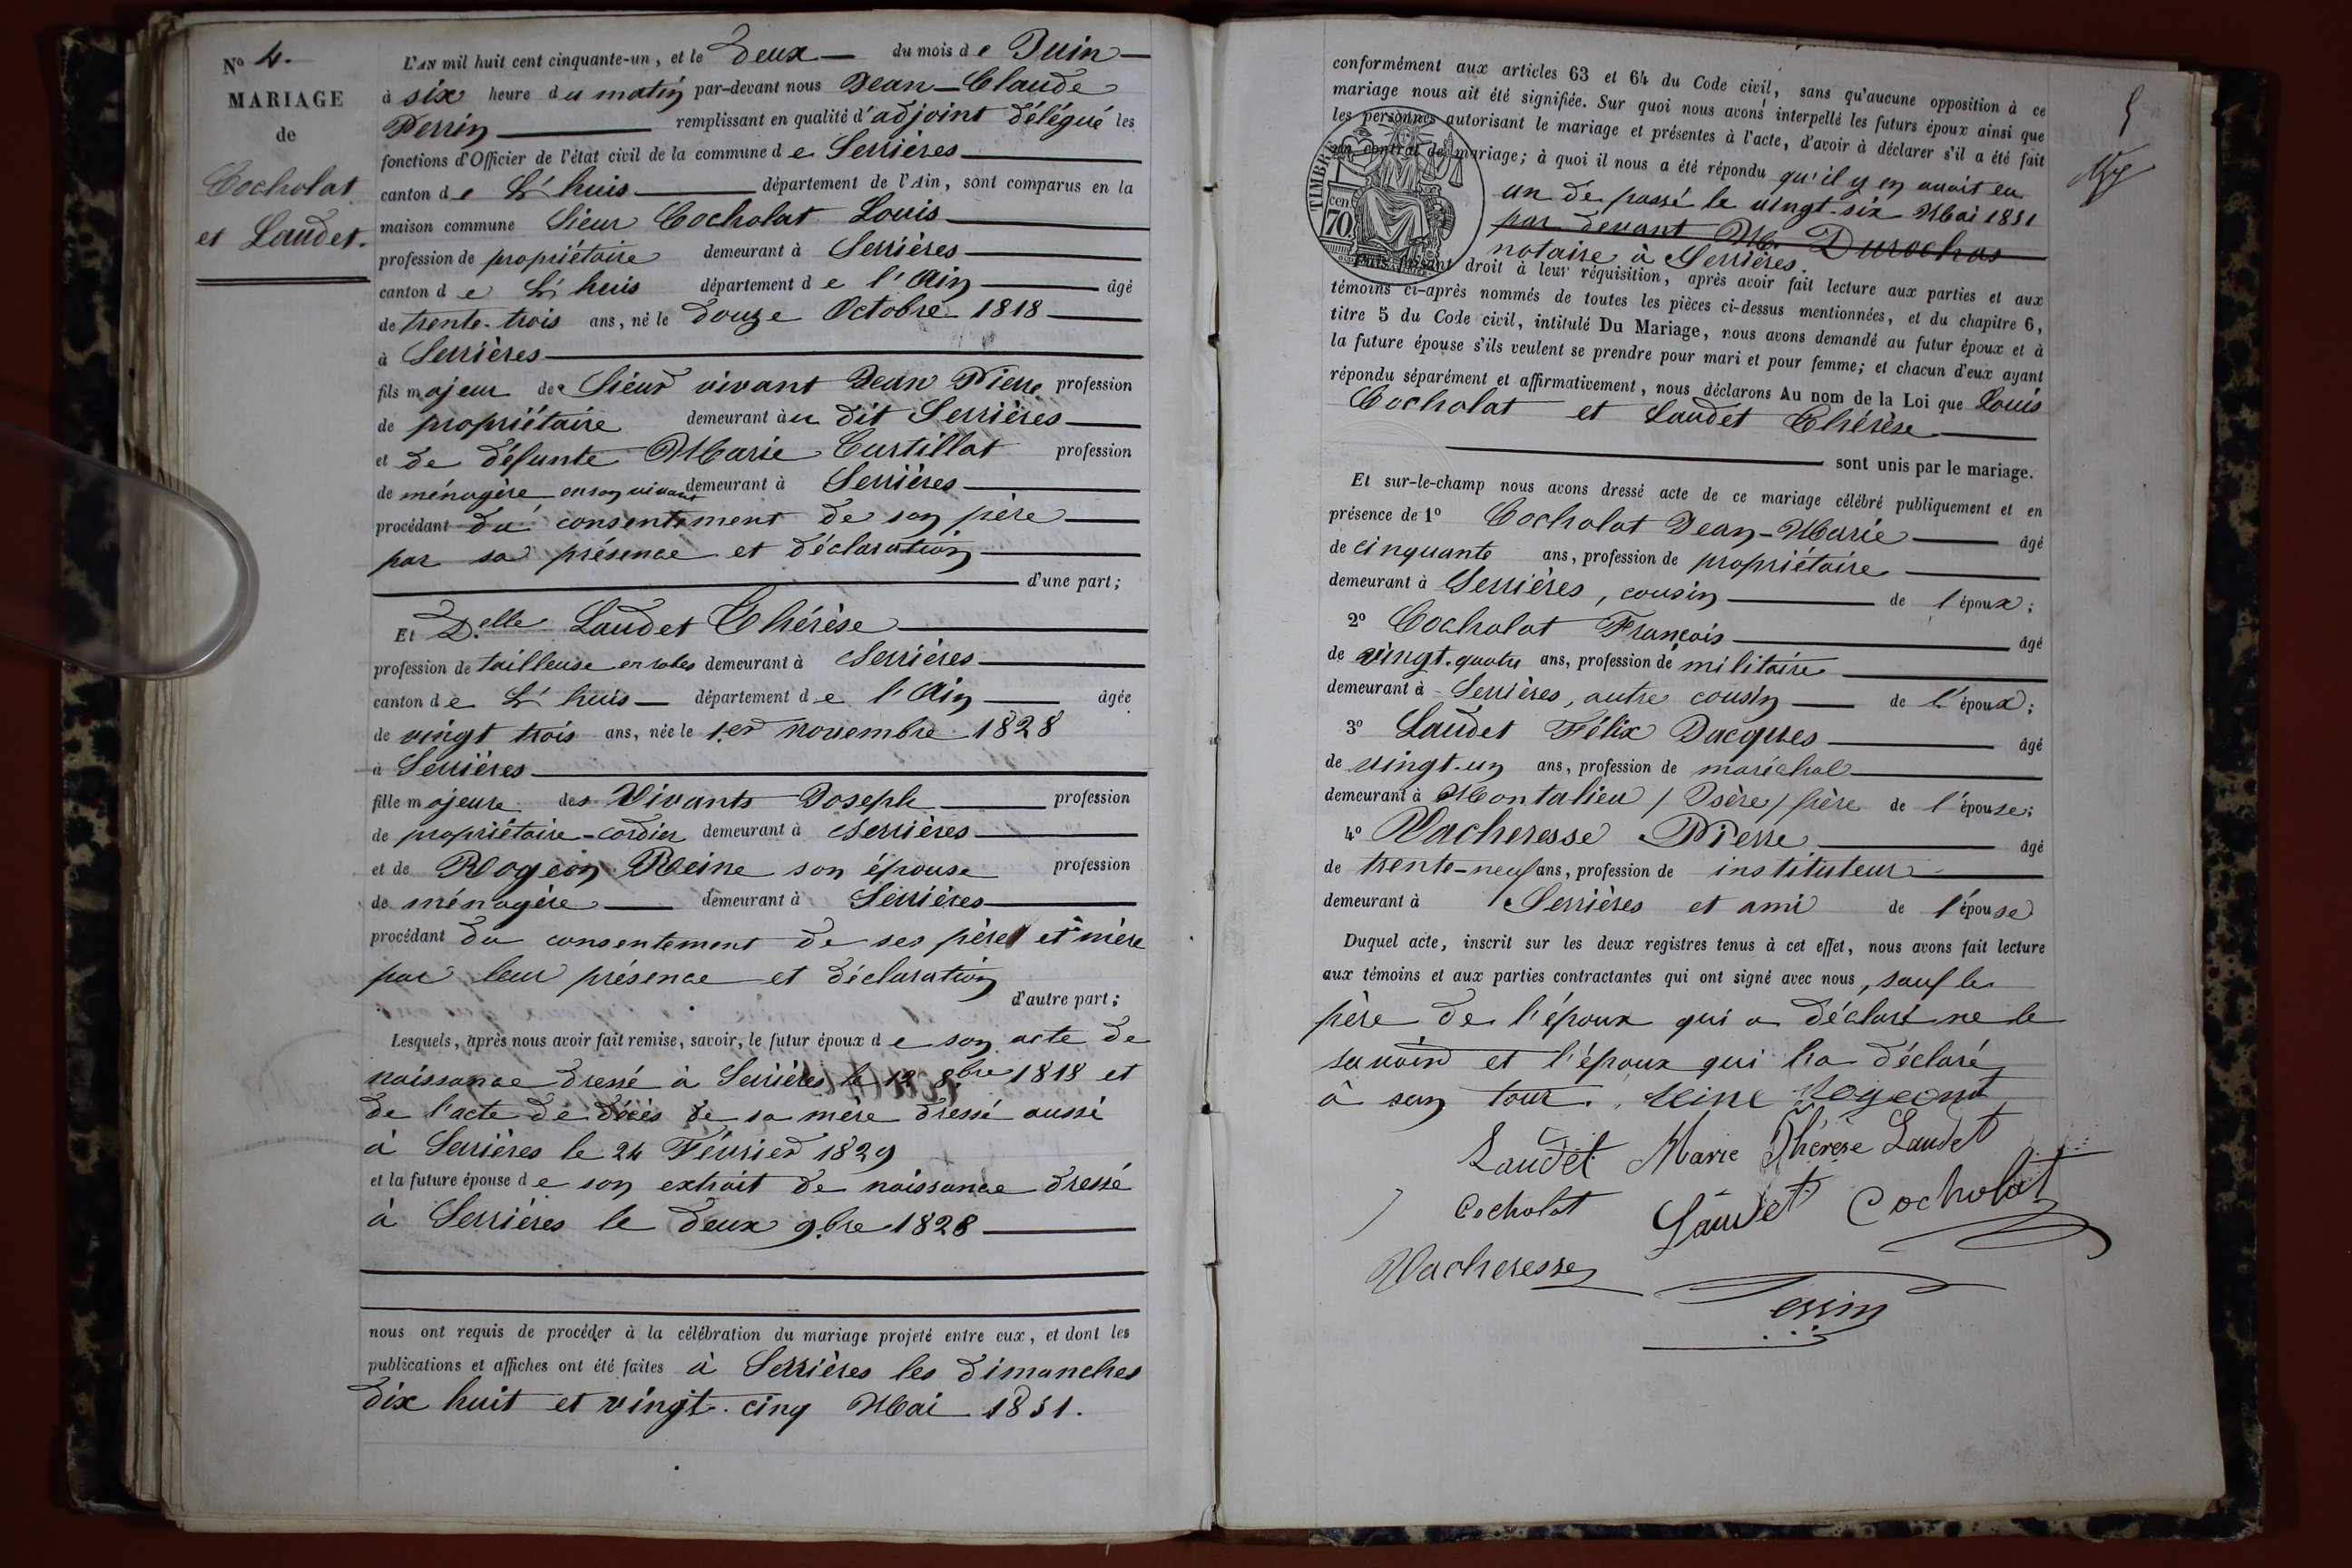 N° 4.
MARIAGE
de
Cocholat
et Laudet.
L'AN mil huit cent cinquante-un, et le Deux du mois de Juin
à six heure du matin par-devant nous Jean-Claude
Perrin remplissant en qualité d'adjoint délégué les
fonctions d'Officier de l'état civil de la commune de Serrières
canton de L'huis département de l'Ain, sont comparus en la
maison commune Sieur Cocholat Louis
profession de propriétaire demeurant à Serrières
canton de L'huis département de l'Ain âgé
de trente-trois ans, né le douze Octobre 1818
à Serrières
fils majeur de Sieur vivant Jean Pierre profession
de propriétaire demeurant au dit Serrières
et de défunte Marie Curtillat profession
de ménagère en son vivant demeurant à Serrières
procédant du consentement de son père
par sa présence et déclaration
d'une part;
Et D.elle Laudet Thérèse
profession de tailleuse en robes demeurant à Serrières
canton de L'huis département de l'Ain âgée
de vingt trois ans, née le 1er novembre 1828
à Serrières
fille majeure des Vivants Joseph profession
de propriétaire-cordier demeurant à Serrières
et de Rogeon Reine son épouse profession
de ménagère demeurant à Serrières
procédant du consentement de ses père et mère
par leur présence et déclaration
d'autre part;
Lesquels, après nous avoir fait remise, savoir, le futur époux de son acte de
naissance dressé à Serrières le 12 8.bre 1818 et
de l'acte de décès de sa mère dressé aussi
à Serrières le 24 Février 1829
et la future épouse de son extrait de naissance dressé
à Serrières le deux 9.bre 1828
nous ont requis de procéder à la célébration du mariage projeté entre eux, et dont les
publications et affiches ont été faites à Serrières les dimanches
dix huit et vingt-cinq Mai 1851.
conformément aux articles 63 et 64 du Code civil, sans qu'aucune opposition à ce
mariage nous ait été signifiée. Sur quoi nous avons interpellé les futurs époux ainsi que
les personnes autorisant le mariage et présentes à l'acte, d'avoir à déclarer s'il a été fait
un contrat de mariage; à quoi il nous a été répondu qu'il y en avait eu
un de passé le vingt-six Mai 1851
par devant Me Durochas
notaire à Serrières.
TIMBRE
cen
70
Puis faisant droit à leur réquisition, après avoir fait lecture aux parties et aux
témoins ci-après nommés de toutes les pièces ci-dessus mentionnées, et du chapitre 6,
titre 5 du Code civil, intitulé Du Mariage, nous avons demandé au futur époux et à
la future épouse s'ils veulent se prendre pour mari et pour femme; et chacun d'eux ayant
répondu séparément et affirmativement, nous déclarons Au nom de la Loi que Louis
Cocholat et Laudet Thérèse
sont unis par le mariage.
Et sur-le-champ nous avons dressé acte de ce mariage célébré publiquement et en
présence de 1° Cocholat Jean-Marie âgé
de cinquante ans, profession de propriétaire
demeurant à Serrières, cousin de l'époux;
2° Cocholat François âgé
de vingt-quatre ans, profession de militaire
demeurant à Serrières, autre cousin de l'époux;
3° Laudet Félix Jacques âgé
de vingt-un ans, profession de maréchal
demeurant à Montalieu / Isère / frère de l'épouse;
4° Vacheresse Pierre âgé
de trente-neuf ans, profession de instituteur
demeurant à Serrières et ami de l'épouse
Duquel acte, inscrit sur les deux registres tenus à cet effet, nous avons fait lecture
aux témoins et aux parties contractantes qui ont signé avec nous, sauf le
père de l'époux qui a déclaré ne le
savoir et l'époux qui l'a déclaré
à son tour. Reine Rogeont
Laudet Marie Thérèse Laudet
Cocholat Laudet Cocholat
Vacheresse
Perrin